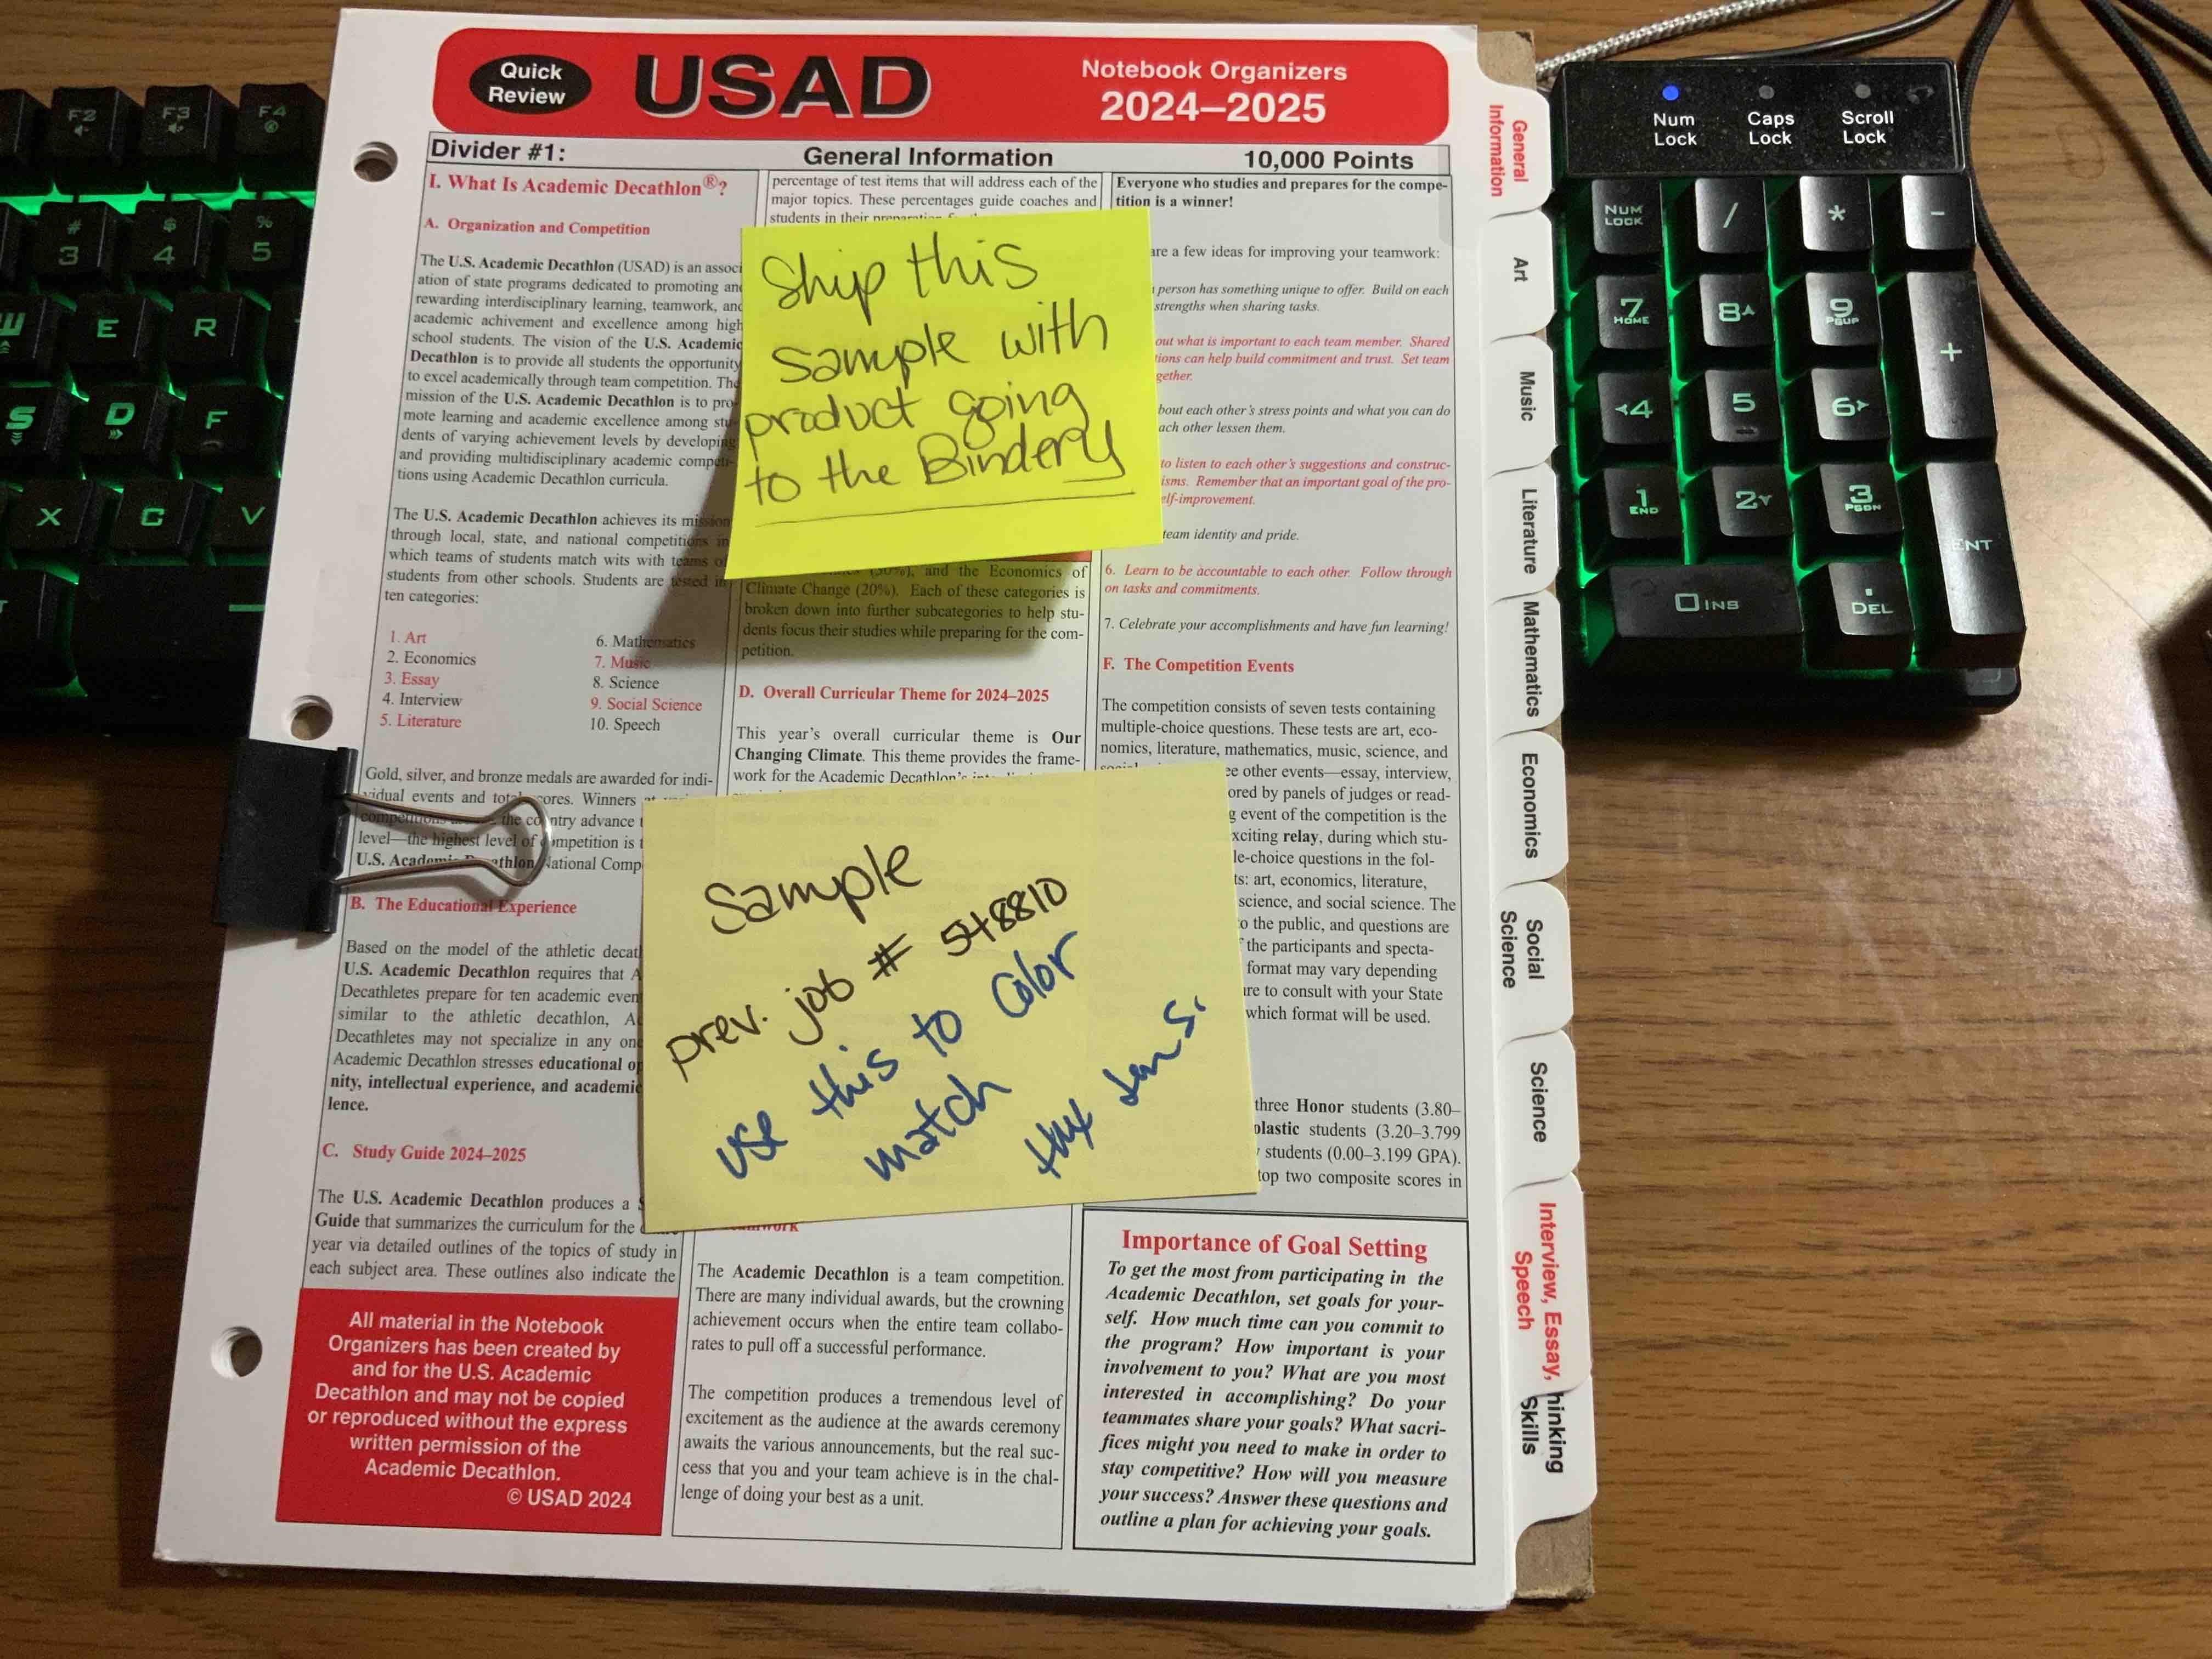 Quick
Review
USAD
Notebook Organizers
2024–2025
Divider #1:
General Information
10,000 Points
I. What Is Academic Decathlon®?
A. Organization and Competition
The U.S. Academic Decathlon (USAD) is an associ
ation of state programs dedicated to promoting an
rewarding interdisciplinary learning, teamwork, and
academic achivement and excellence among high
school students. The vision of the U.S. Academic
Decathlon is to provide all students the opportunity
to excel academically through team competition. The
mission of the U.S. Academic Decathlon is to pro-
mote learning and academic excellence among stu-
dents of varying achievement levels by developing
and providing multidisciplinary academic competi-
tions using Academic Decathlon curricula.
The U.S. Academic Decathlon achieves its mission
through local, state, and national competitions in
which teams of students match wits with teams of
students from other schools. Students are tested in
ten categories:
1. Art
2. Economics
3. Essay
4. Interview
5. Literature
6. Mathematics
7. Music
8. Science
9. Social Science
10. Speech
Gold, silver, and bronze medals are awarded for indi-
vidual events and total scores. Winners
competitions the country advance
level—the highest level of competition is
U.S. Academic Decathlon National Comp
B. The Educational Experience
Based on the model of the athletic decat
U.S. Academic Decathlon requires that A
Decathletes prepare for ten academic even
similar to the athletic decathlon, A
Decathletes may not specialize in any one
Academic Decathlon stresses educational op
nity, intellectual experience, and academic
lence.
C. Study Guide 2024–2025
The U.S. Academic Decathlon produces a S
Guide that summarizes the curriculum for the
year via detailed outlines of the topics of study in
each subject area. These outlines also indicate the
All material in the Notebook
Organizers has been created by
and for the U.S. Academic
Decathlon and may not be copied
or reproduced without the express
written permission of the
Academic Decathlon.
© USAD 2024
percentage of test items that will address each of the
major topics. These percentages guide coaches and
students in their preparation
Ship this
sample with
product going
to the Bindery
(30%), and the Economics of
Climate Change (20%). Each of these categories is
broken down into further subcategories to help stu-
dents focus their studies while preparing for the com-
petition.
D. Overall Curricular Theme for 2024–2025
This year's overall curricular theme is Our
Changing Climate. This theme provides the frame-
work for the Academic Decathlon's
Sample
prev. job # 548810
use this to color
match
thx
The Academic Decathlon is a team competition.
There are many individual awards, but the crowning
achievement occurs when the entire team collabo-
rates to pull off a successful performance.
The competition produces a tremendous level of
excitement as the audience at the awards ceremony
awaits the various announcements, but the real suc-
cess that you and your team achieve is in the chal-
lenge of doing your best as a unit.
Everyone who studies and prepares for the compe-
tition is a winner!
are a few ideas for improving your teamwork:
person has something unique to offer. Build on each
strengths when sharing tasks.
out what is important to each team member. Shared
tions can help build commitment and trust. Set team
gether.
bout each other's stress points and what you can do
ach other lessen them.
to listen to each other's suggestions and construc-
isms. Remember that an important goal of the pro-
elf-improvement.
team identity and pride.
6. Learn to be accountable to each other. Follow through
on tasks and commitments.
7. Celebrate your accomplishments and have fun learning!
F. The Competition Events
The competition consists of seven tests containing
multiple-choice questions. These tests are art, eco-
nomics, literature, mathematics, music, science, and
ee other events—essay, interview,
ored by panels of judges or read-
g event of the competition is the
xciting relay, during which stu-
le-choice questions in the fol-
ts: art, economics, literature,
science, and social science. The
o the public, and questions are
the participants and specta-
format may vary depending
ure to consult with your State
which format will be used.
three Honor students (3.80–
olastic students (3.20–3.799
students (0.00–3.199 GPA).
top two composite scores in
Importance of Goal Setting
To get the most from participating in the
Academic Decathlon, set goals for your-
self. How much time can you commit to
the program? How important is your
involvement to you? What are you most
interested in accomplishing? Do your
teammates share your goals? What sacri-
fices might you need to make in order to
stay competitive? How will you measure
your success? Answer these questions and
outline a plan for achieving your goals.
General
Information
Art
Music
Literature
Mathematics
Economics
Social
Science
Science
Interview, Essay,
Speech
hinking
Skills
F2
F3
F4
#
3
$
4
%
5
W
E
R
S
D
F
X
C
V
Num
Lock
Caps
Lock
Scroll
Lock
NUM
LOCK
/
*
-
7
HOME
8
9
PGUP
+
4
5
6
1
END
2
3
PGDN
ENT
0 INS
.
DEL